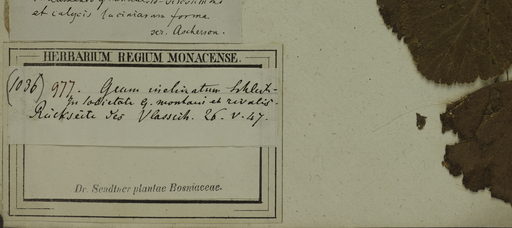 et calycis laciniarum forma
scr. Ascherson.
HERBARIUM REGIUM MONACENSE.
(1036) 977. Geum inclinatum Schleich.
in societate G. montani et rivalis
Rückseite des Vlassich. 26. V. 47.
Dr. Sendtner plantae Bosniaceae.